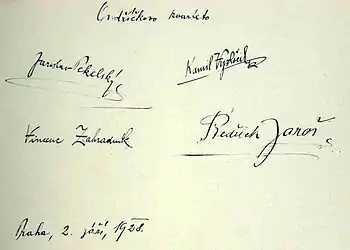 Ondříčkovo kvarteto
Jaroslav Pekelský Kamil Vyskočil
Vincenc Zahradník Bedřich Jaroš
Praha, 2. září, 1928.